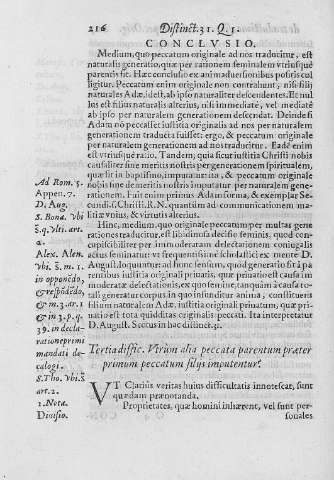 216 Distinct. 31. Q. 1.
CONCLVSIO.
Medium, quo peccatum originale ad nos traducitur, est
naturalis generatio, quæ per rationem seminalem vtriusque
parentis fit. Hæc conclusio ex animaduersionibus positis col
ligitur. Peccatum enim originale non contrahunt, nisi filij
naturales Adæ, idest, ab ipso naturaliter descendentes. Et nul
lus est filius naturalis alterius, nisi immediatè, vel mediatè
ab ipso per naturalem generationem descendat. Deinde si
Adam nō peccasset iustitia originalis ad nos per naturalem
generationem traducta fuisset: ergo, & peccatum originale
per naturalem generationem ad nos traducitur. Eadē enim
est vtriusque ratio. Tandem, quia sicut iustitia Christi nobis
causaliter siue meritis nostris per generationem spiritualem,
quæ fit in baptismo, imputatur: ita, & peccatum originale
nobis sine demeritis nostris imputatur per naturalem gene-
rationem. Fuit enim primus Adam forma, & exemplar Se-
cundi, s. Christi. R. N. quantum ad communicationem ma-
litiæ vnius, & virtutis alterius.
Hinc, medium, quo originale peccatum per multas gene
rationes traducitur, est libidinosus decisio seminis, quod con-
cupiscibiliter per immoderatam delectationem coniugalis
actus feminatur: vt frequentius in scholasticis ex mente D.
August. loquuntur: ad hunc sensum, quod generatio fit à pa
rentibus iustitia originali priuatis, quæ priuatio est causa im
moderatæ delectationis, ex quo semine, tanquam à causa to-
tali generatur corpus in quo infunditur anima; constituerit
filium naturalem Adæ, iustitia originali priuatum, quæ pri-
uatio est tota quidditas originalis peccati. Ita interpretatur
D. August. Scotus in hac distinct. 31.
Ad Rom. 5.
Appen. 7.
D. Aug.
S. Bona. vbi
s. q. vlti. art.
2.
Alex. Alen.
vbi. s. m. 1.
in oppenēdo,
& respōdēdo,
& m. 3. ar. 1.
& in 3. p. q.
39. in decla-
ratione primi
mandati de-
calogi.
S. Tho. vbi. s.
art. 2.
1. Nota.
Diuisio.
Tertia diffic. Vtrùm alia peccata parentum præter
primum peccatum filijs imputentur?
VT Clarius veritas huius difficultatis innotescat, sunt
quædam prænotanda.
Proprietates, quæ homini inhærent, vel sunt per-
sonales